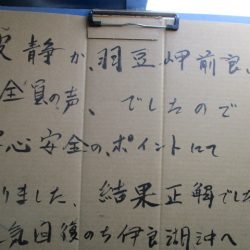 安静か、羽豆岬前良、
全員の声、でしたので
心安全の、ポイントにて
りました、結果正解でした
気回後のち伊良湖沖へ